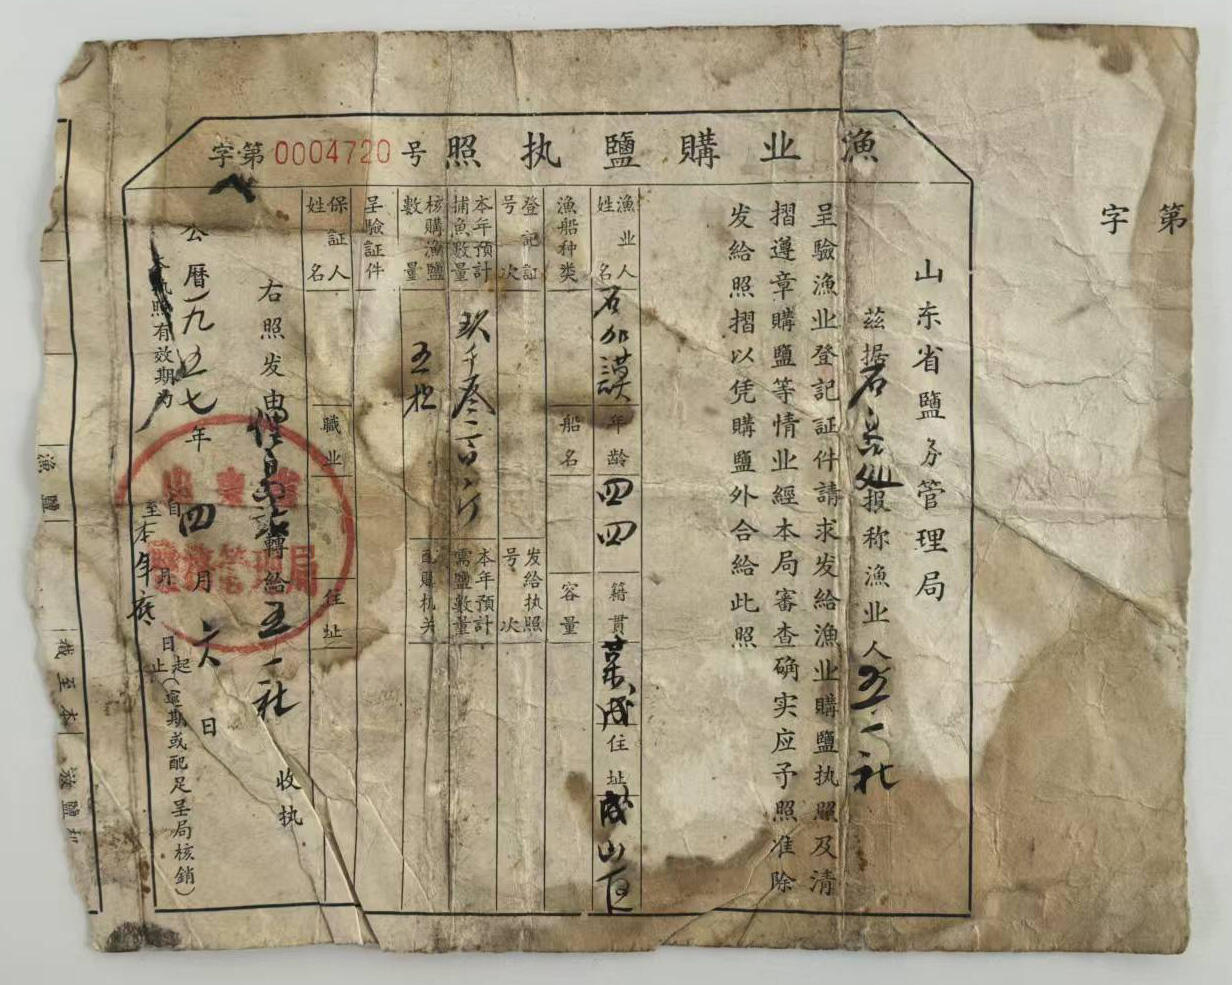 漁业購鹽执照
字第0004720号
山东省鹽务管理局
兹据石岛处报称漁业人五一社
呈驗漁业登記証件請求发給漁业購鹽执照及清
摺遵章購鹽等情业經本局審查确实应予照准除
发給照摺以凭購鹽外合給此照
漁业人姓名
年龄 四四
籍貫 荣成
住址 成山
漁船种类
船名
容量
登記証号次
发給执照号次
本年預計捕魚数量
本年預計需鹽数量
核購漁鹽數量
配購机关
呈驗証件
保証人姓名
職业
住址
右照发由 轉給五一社
收执
公曆一九五七年四月六日
本执照有效期为
自 月 日起
至本年底止(逾期或配足呈局核銷)
山東省鹽務管理局
第
字
漁鹽
截至本